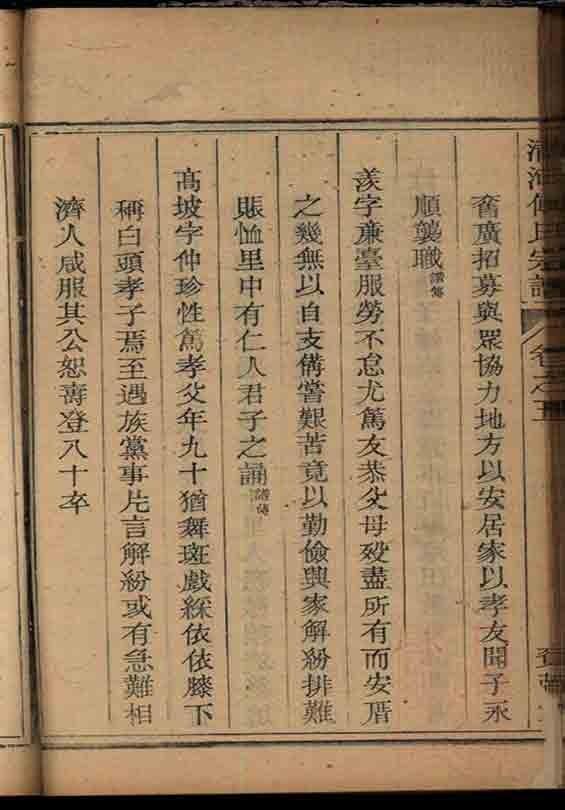 奮廣招募與眾協力地方以安居家以孝友聞子永
順襲職譜傳
羨字亷臺服勞不怠尤篤友恭父母歿盡所有而安厝
之幾無以自支備嘗艱苦竟以勤儉興家解紛排難
賬恤里中有仁人君子之誦譜傳
高坡字仲珍性篤孝父年九十猶舞斑戲綵依依膝下
稱白頭孝子焉至遇族黨事片言解紛或有急難相
濟人咸服其公恕壽登八十卒
氏宗譜
卷之五